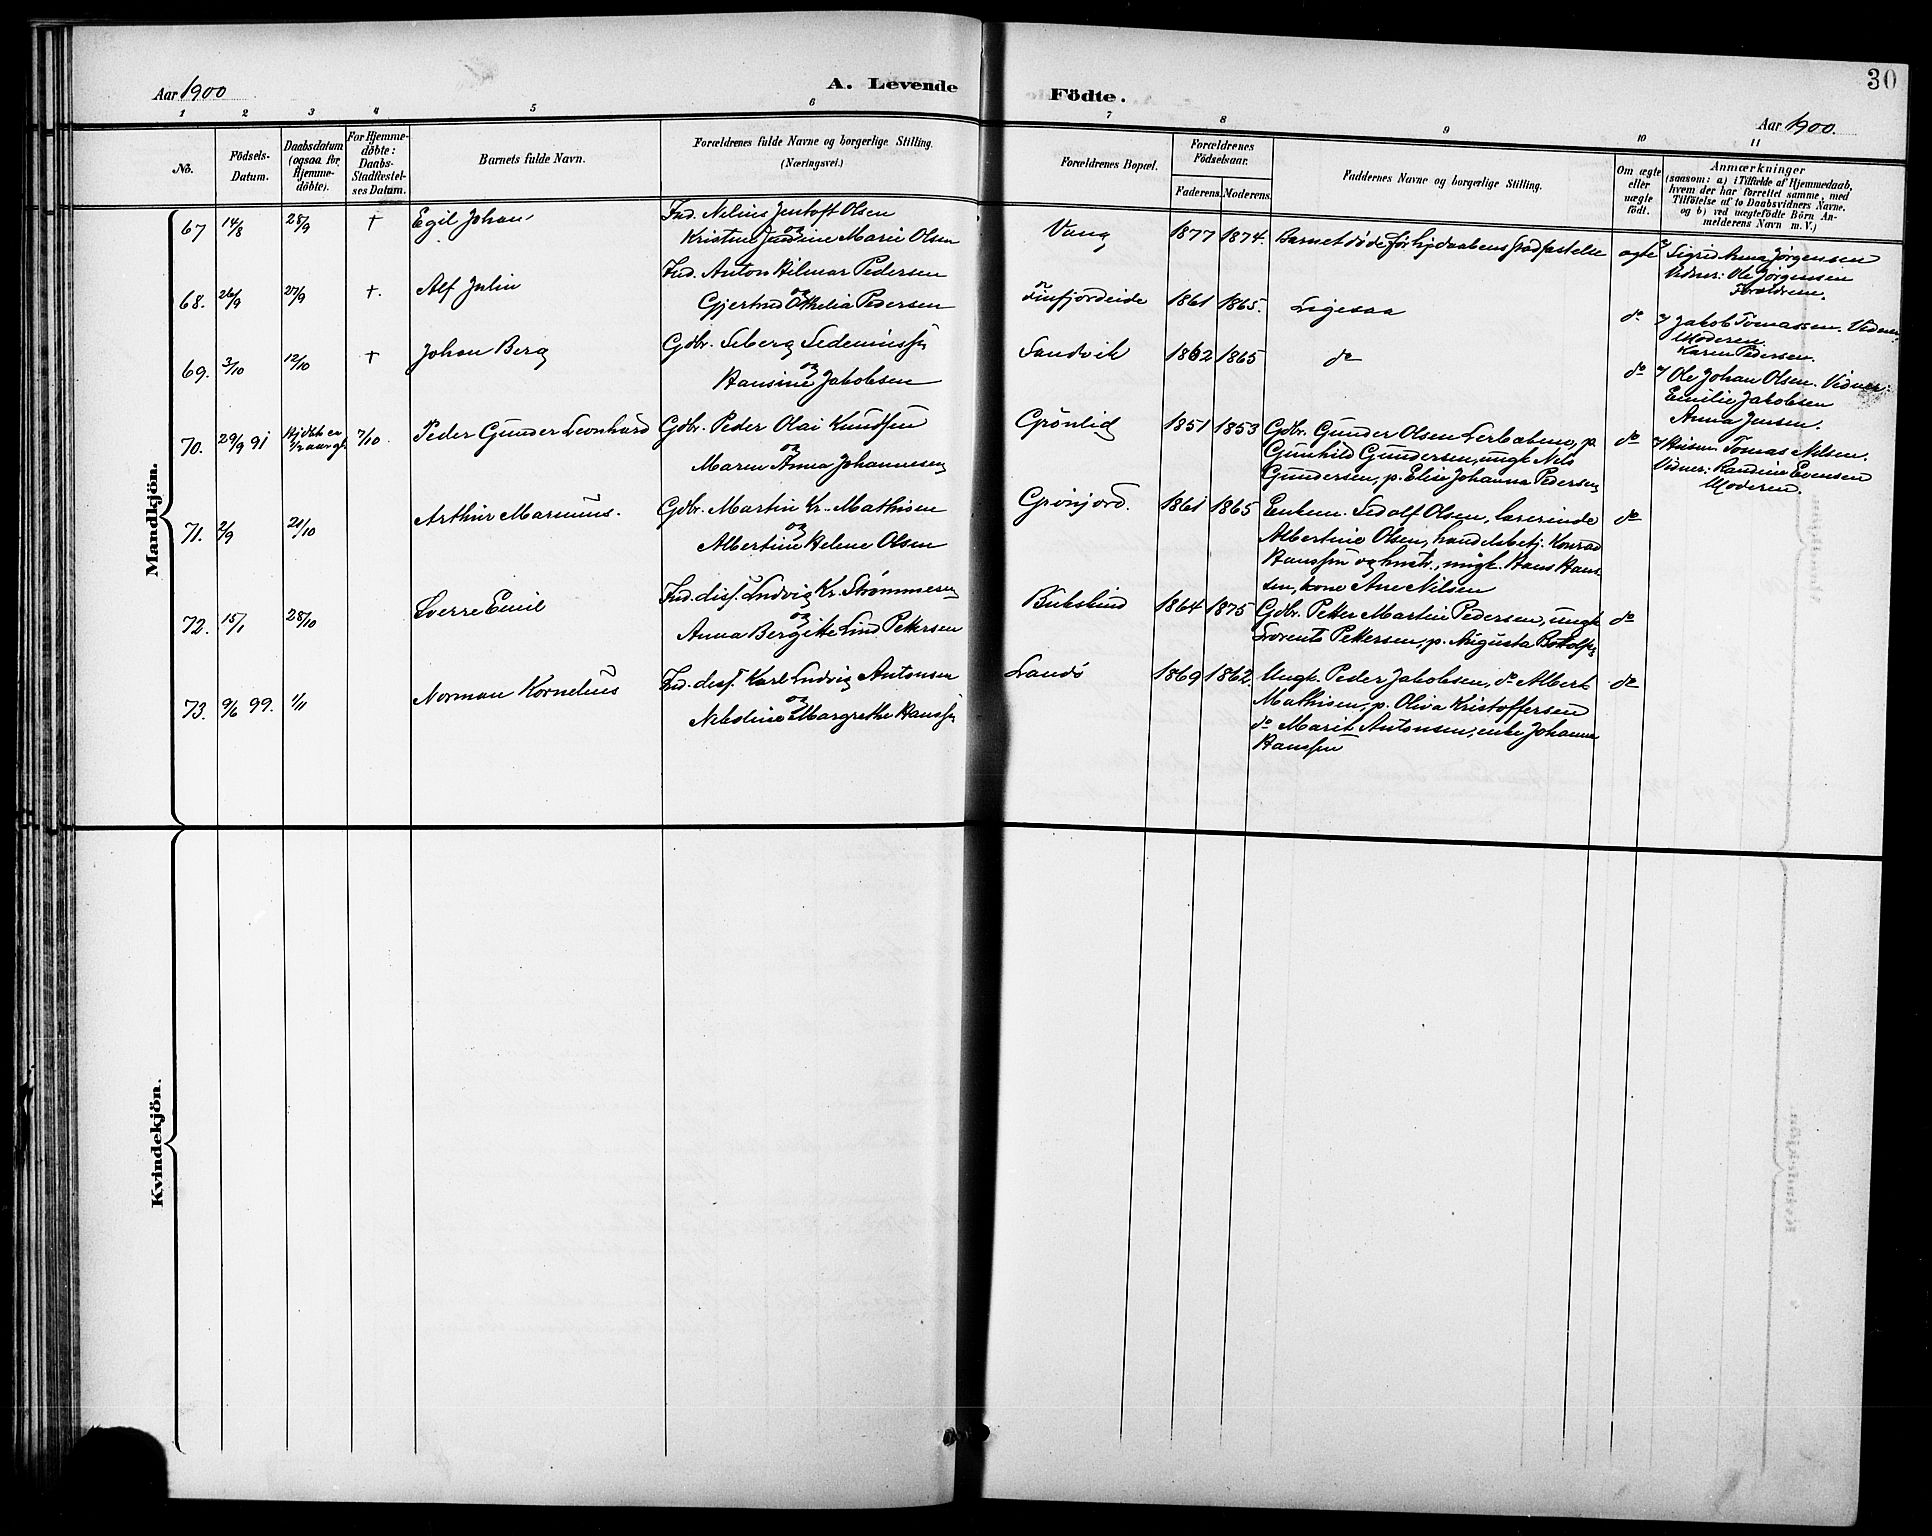 30
Aar 1900
A. Levende
Födte.
Aar 1900.
1 2 3 4 5 6 7 8 9 10 11
No.
Födsels-
Datum.
Daabsdatum
(ogsaa for
Hjemme-
döbte).
For Hjemme-
döbte:
Daabs-
Stadfæstel-
ses Datum.
Barnets fulde Navn.
Forældrenes fulde Navne og borgerlige Stilling.
(Næringsvei.)
Forældrenes Bopæl.
Forældrenes
Födselsaar.
Faderens. Moderens.
Faddernes Navne og borgerlige Stilling.
Om ægte
eller
uægte
födt.
Anmærkninger
(saasom: a) i Tilfælde af Hjemmedaab,
hvem der har forrettet samme, med
Tilföielse af to Daabsvidners Navne.
og b) ved uægtefödte Börn An-
melderens Navn m. V.)
Mandkjön.
67 14/8 28/9 † Egil Johan
Ind. Nelius Jentoft Olsen
og
Kristine Marie Olsen
Vang 1877 1874. Barnet døde før hjdaabens stadfæstelse ægte
Sigrid Anna Jørgensen
Vidner: Ole Jørgensen
Forældrene.
68. 26/9 27/9 †. Alf Julin
Ind. Anton Hilmar Pedersen
og
Gjertrud Othelia Pedersen
Finfjordeide 1861 1865. Ligesaa do
Jakob Tomassen. Vidner:
Moderen.
Karen Pedersen.
69. 3/10 12/10 † Johan Berg
Gdbr. Seberg Sedeniussen
og
Hansine Jakobsen
Sandvik 1862 1865 do do
Ole Johan Olsen. Vidner:
Emilie Jakobsen
Anna Jensen.
70. 29/9 91 7/10. Peder Gunder Leonhard
Gdbr. Peder Olai Knudsen
og
Maren Anna Johannesen
Grönlid 1851 1853
Gdbr. Gunder Olsen Lerbæbeng, p.
Gunhild Gundersen, ungk. Nels
Gundersen, p. Elise Johanna Pedersen
do
Tomas Nilsen.
Vidner: Randine Evensen
Moderen.
71. 2/9 21/10 Arthur Marinius.
Gdbr. Martin Kr. Mathisen
og
Albertine Helene Olsen
Grönjord. 1861 1865
Enkem. Sedolf Olsen, lærerinde
Albertine Olsen, handelsbetj. Konrad
Hanssen og hustr., ungk. Hans Hans-
sen, kone Ane Nilsen
do
72. 15/1 28/10 Sverre Emil
Ind. diss. Ludvig Kr. Strømmesen
og
Anna Bergitte Lind Pettersen
Bukskind 1864 1875
Gdbr. Petter Martin Pedersen, ungk.
Lorents Pettersen, p. Augusta Bottolfs
do
73. 9/6 99. 1/11 Norman Kornelius
Ind. diss. Karl Ludvig Antonsen
og
Nikoline Margrethe Hanssen
Sandö 1869 1862.
Ungk. Peder Jakobsen, do Albert
Mathisen, p. Oliva Kristoffersen
do Marit Antonsen, enke Johanna
Hanssen
do
Kvindekjön.